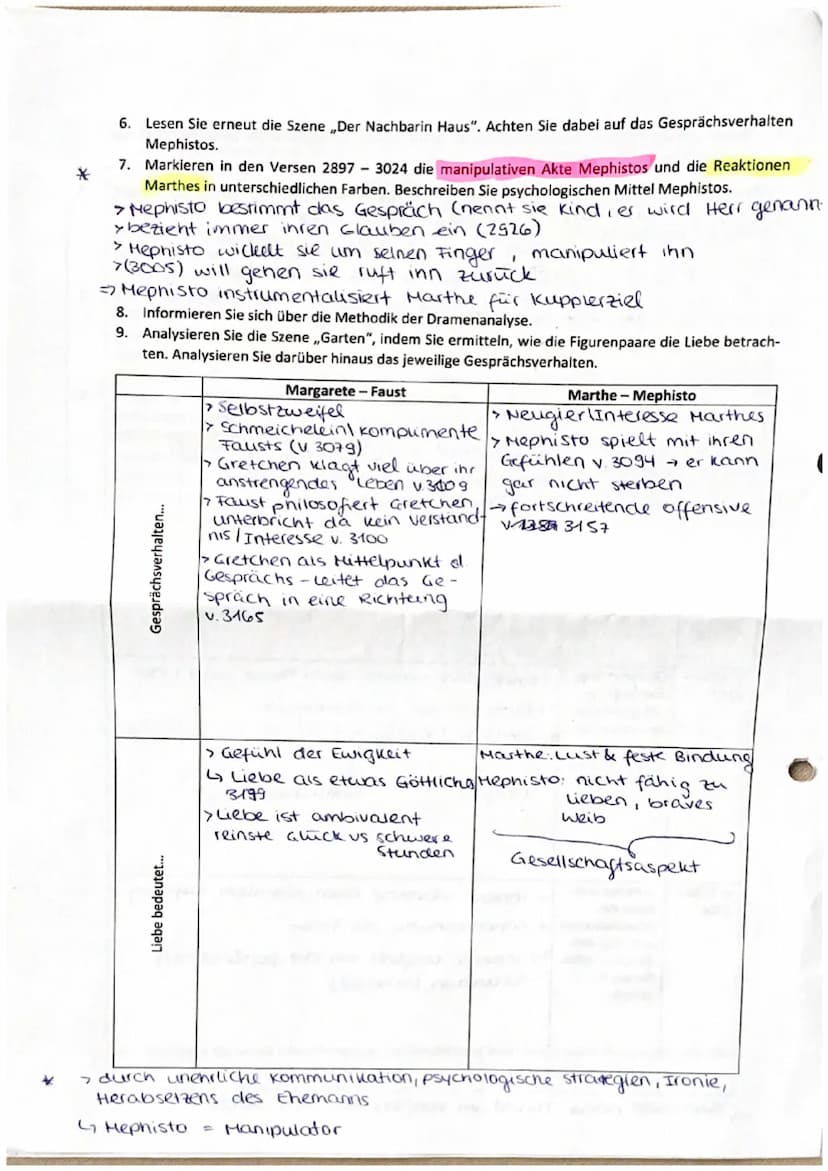 6. Lesen Sie erneut die Szene „Der Nachbarin Haus". Achten Sie dabei auf das Gesprächsverhalten
Mephistos.
* 7. Markieren in den Versen 2897 – 3024 die manipulativen Akte Mephistos und die Reaktionen
Marthes in unterschiedlichen Farben. Beschreiben Sie psychologischen Mittel Mephistos.
> Mephisto bestimmt das Gespräch (nennt sie Kind, er wird Herr genann
> bezieht immer ihren Glauben ein (2926)
> Mephisto wickelt sie um seinen Finger, manipuliert ihn
> (3005) will gehen sie ruft inn zurück
=> Mephisto instrumentalisiert Marthe für Kupplerziel
8. Informieren Sie sich über die Methodik der Dramenanalyse.
9. Analysieren Sie die Szene „Garten", indem Sie ermitteln, wie die Figurenpaare die Liebe betrach-
ten. Analysieren Sie darüber hinaus das jeweilige Gesprächsverhalten.
Margarete – Faust
Marthe – Mephisto
Gesprächsverhalten...
> Selbstzweifel
> Schmeichelein\ Komplimente
Fausts (v. 3079)
> Gretchen klagt viel über ihr
anstrengendes Leben v.3109
> Faust philosofiert Gretchen
unterbricht da kein verständ-
nis / Interesse v. 3100
> Gretchen als Mittelpunkt d.
Gesprächs – leitet das Ge-
spräch in eine Richtung
v.3165
> Neugier\Interesse Marthes
> Mephisto spielt mit ihren
Gefühlen v. 3094 → er kann
gar nicht sterben
→ fortschreitende offensive
v. 3157
Liebe bedeutet...
> Gefühl der Ewigkeit
↳ Liebe als etwas Göttliches
3199
> Liebe ist ambivalent
reinste Glück vs schwere
Stunden
Marthe: Lust & feste Bindung
Mephisto: nicht fähig zu
lieben, braves
Weib
Gesellschaftsaspekt
* > durch unehrliche Kommunikation, psychologische Strategien, Ironie,
Herabsetzens des Ehemanns
↳ Mephisto = Manipulator